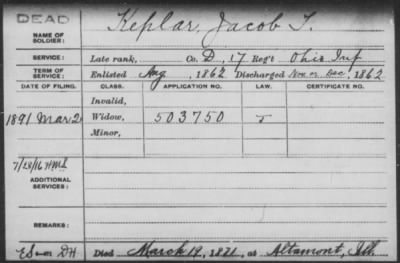 DEAD
NAME OF SOLDIER: Keplar, Jacob T.
SERVICE: Late rank, Co. D, 17 Reg't Ohio Inf
TERM OF SERVICE: Enlisted Aug, 1862 Discharged Nov or Dec, 1862
DATE OF FILING. CLASS. APPLICATION NO. LAW. CERTIFICATE NO.
Invalid,
1891 Mar 2 Widow, 503750
Minor,
7/28/16
ADDITIONAL SERVICES:
REMARKS:
Died March 19, at Altamont, Ill.